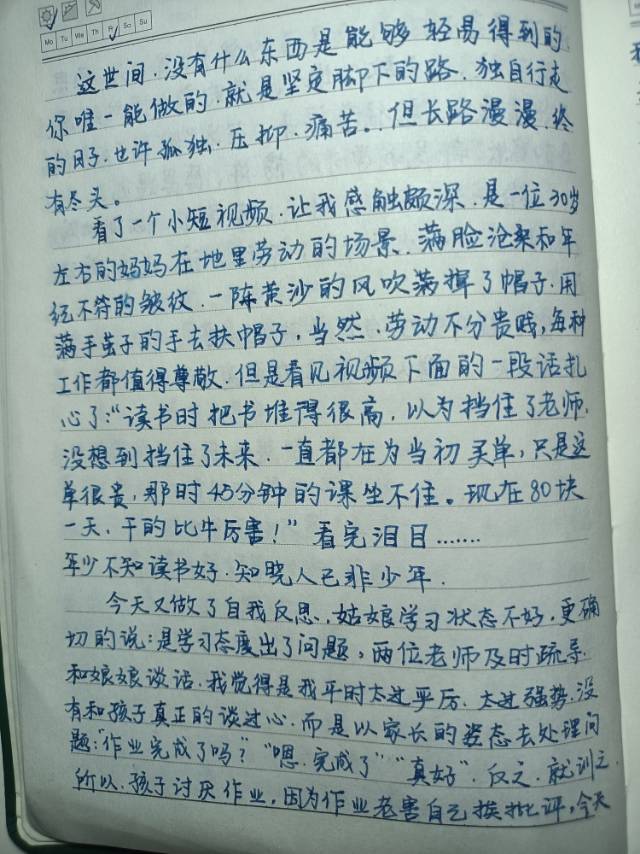 Mo Tu We Th Fr Sa Su
这世间.没有什么东西是能够轻易得到的
你唯一能做的.就是坚定脚下的路.独自行走
的日子.也许孤独.压抑.痛苦..但长路漫漫.终
有尽头。
看了一个小短视频.让我感触颇深.是一位30岁
左右的妈妈在地里劳动的场景.满脸沧桑和年
纪不符的皱纹.一阵黄沙的风吹满掉了帽子.用
满手茧子的手去扶帽子,当然.劳动不分贵贱,每种
工作都值得尊敬.但是看见视频下面的一段话扎
心了:"读书时把书堆得很高.以为挡住了老师.
没想到挡住了未来.一直都在为当初买单,只是这
单很贵,那时45分钟的课坐不住。现在80块
一天.干的比牛厉害!"看完泪目.......
年少不知读书好.知晓人已非少年.
今天又做了自我反思.姑娘学习状态不好,更确
切的说:是学习态度出了问题,两位老师及时疏导.
和娘娘谈话.我觉得是我平时太过严厉.太过强势.没
有和孩子真正的谈过心.而是以家长的姿态去处理问
题:"作业完成了吗?""嗯.完成了""真好".反之.就训之.
所以.孩子讨厌作业,因为作业老害自己挨批评,今天